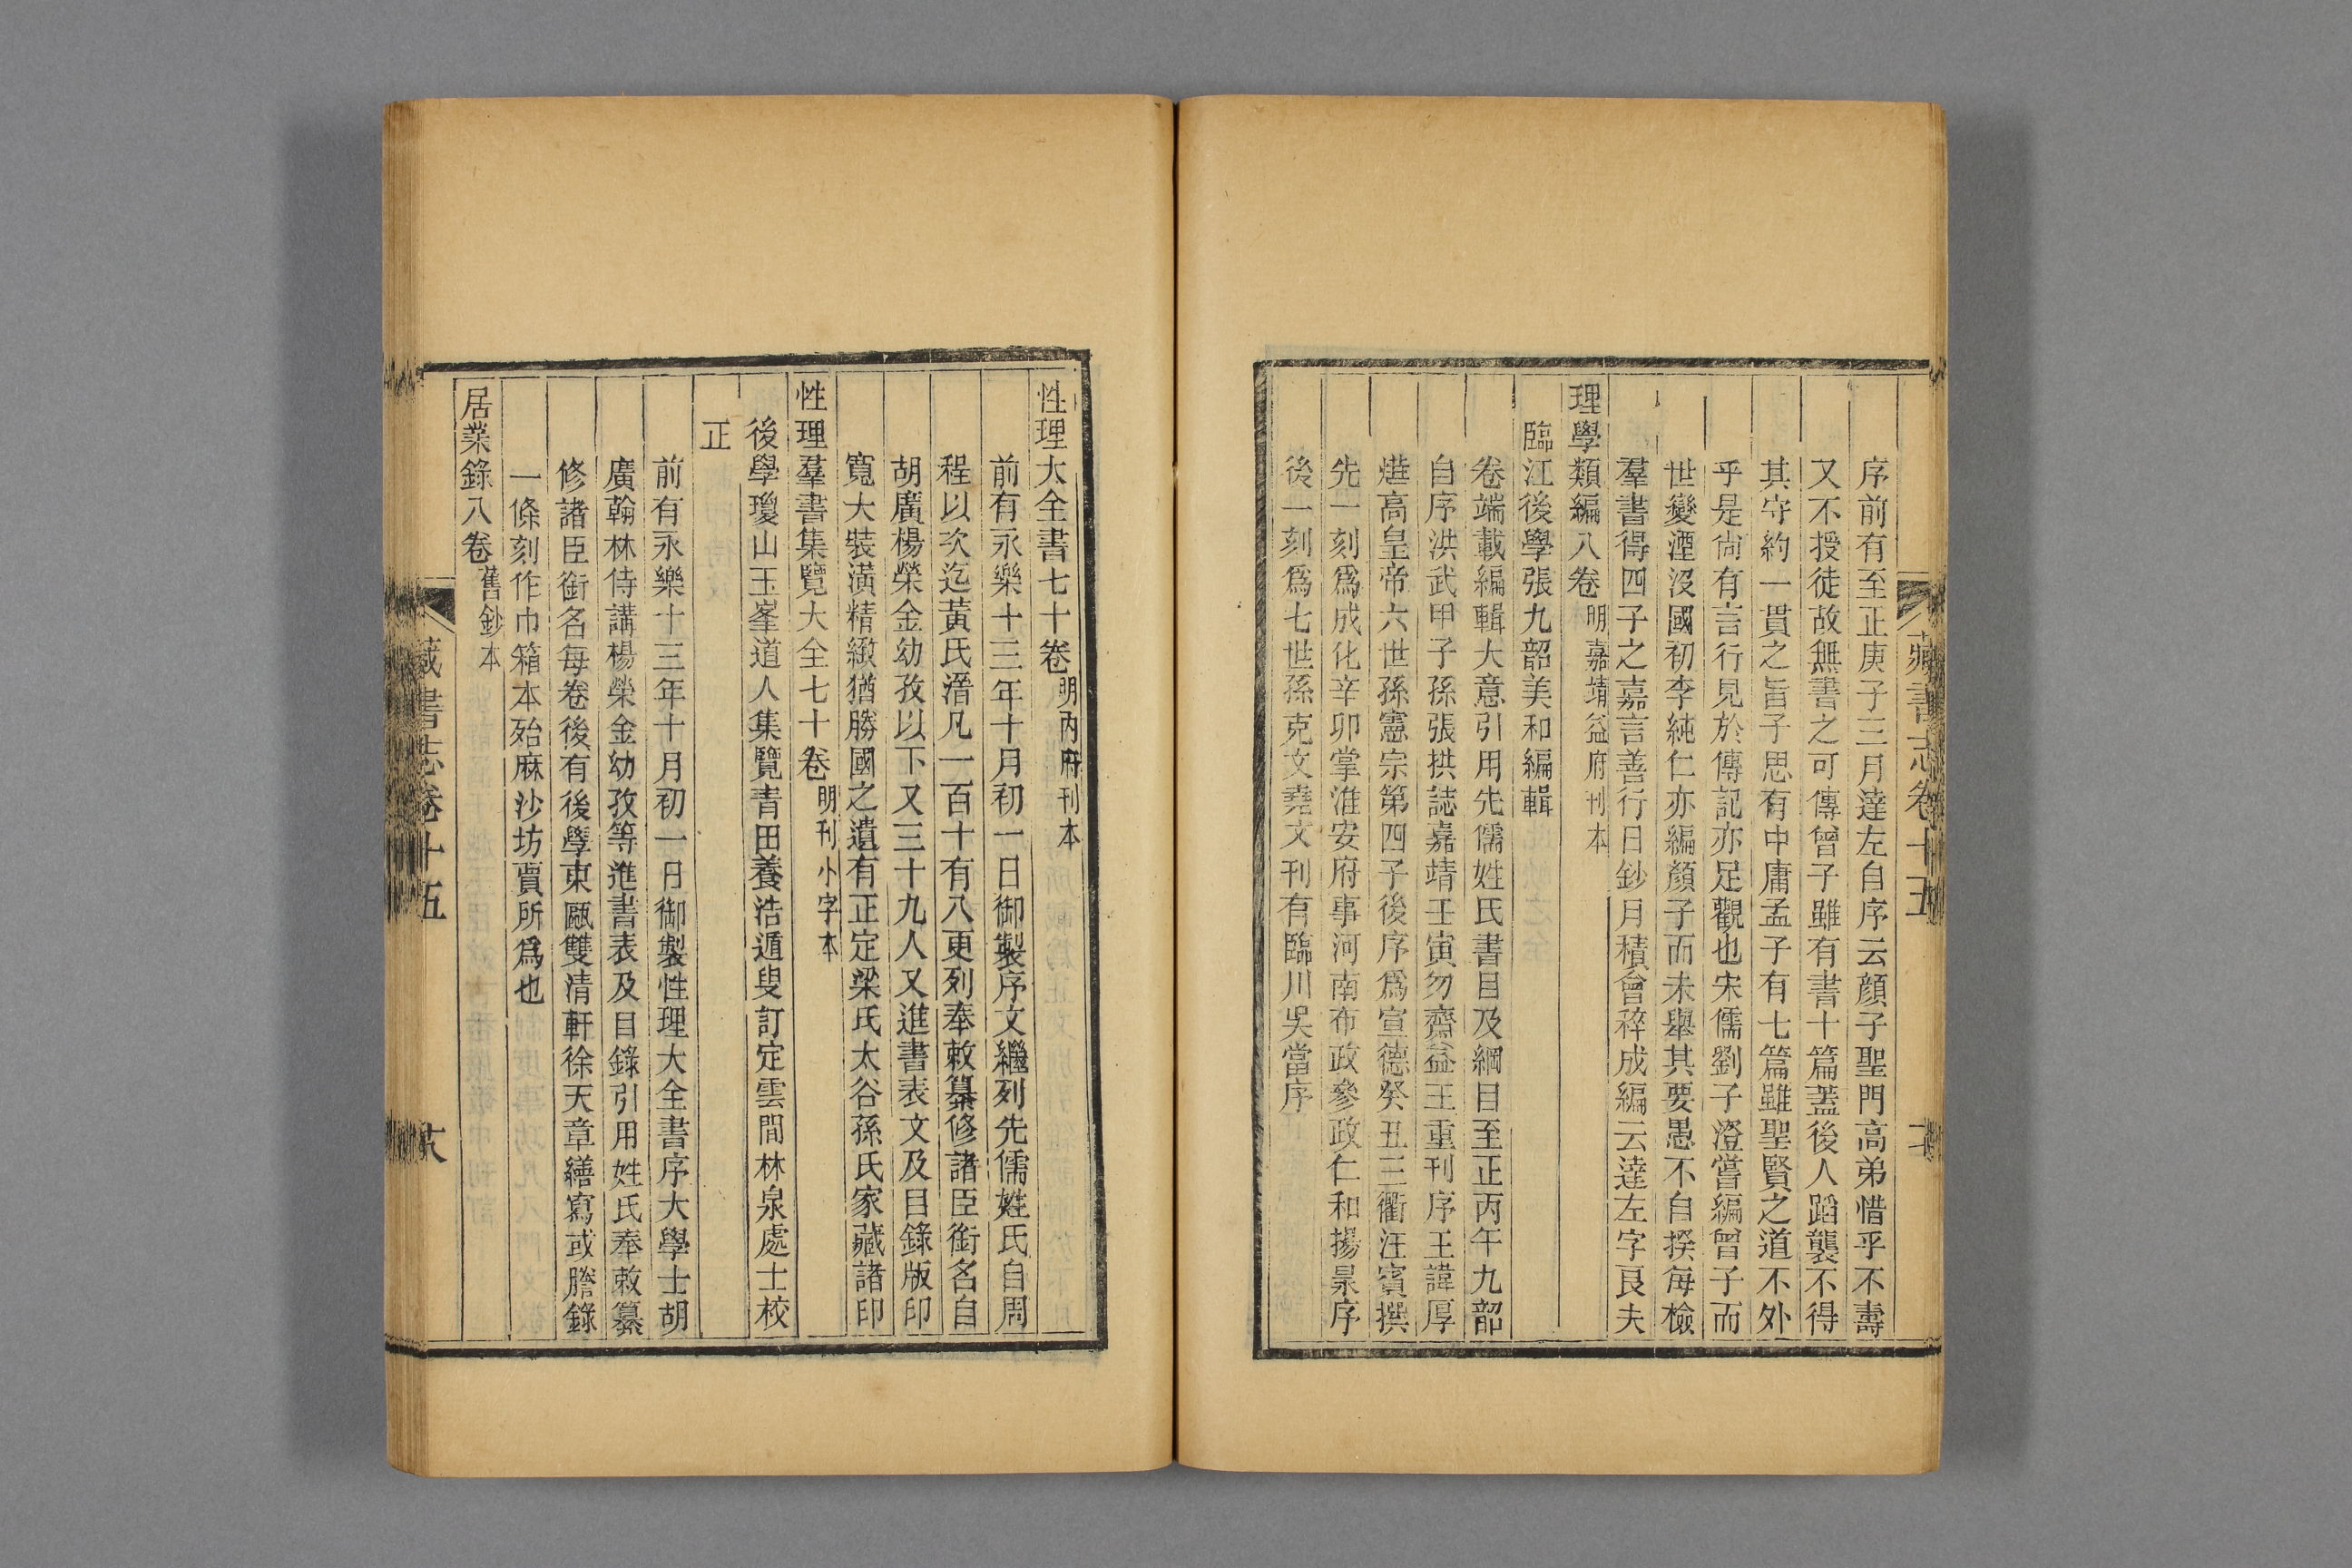 藏書志卷十五
序前有至正庚子三月達左自序云顔子聖門高弟惜乎不壽
又不授徒故無書之可傳曾子雖有書十篇蓋後人蹈襲不得
其守約一貫之旨子思有中庸孟子有七篇雖聖賢之道不外
乎是尙有言行見於傳記亦足觀也宋儒劉子澄嘗編曾子而
世變湮沒國初李純仁亦編顏子而未舉其要愚不自揆每檢
羣書得四子之嘉言善行日鈔月積會稡成編云達左字良夫
理學類編八卷明嘉靖益府刊本
臨江後學張九韶美和編輯
卷端載編輯大意引用先儒姓氏書目及綱目至正丙午九韶
自序洪武甲子孫張拱誌嘉靖壬寅勿齋益王重刊序王諱厚
熚高皇帝六世孫憲宗第四子後序爲宣德癸丑三衢汪賓撰
先一刻爲成化辛卯掌淮安府事河南布政參政仁和揚㫤序
後一刻爲七世孫克文堯文刊有臨川吳當序
性理大全書七十卷明內府刊本
前有永樂十三年十月初一日御製序文繼列先儒姓氏自周
程以次迄黃氏溍凡一百十有八更列奉敕纂修諸臣銜名自
胡廣楊榮金幼孜以下又三十九人又進書表文及目錄版印
寬大裝潢精緻猶勝國之遺有正定梁氏太谷孫氏家藏諸印
性理羣書集覽大全七十卷明刊小字本
後學瓊山玉峯道人集覽青田養浩遁叟訂定雲間林泉處士校
正
前有永樂十三年十月初一日御製性理大全書序大學士胡
廣翰林侍講楊榮金幼孜等進書表及目錄引用姓氏奉敕纂
修諸臣銜名每卷後有後學東甌雙清軒徐天章繕寫或謄錄
一條刻作巾箱本殆麻沙坊賈所爲也
居業錄八卷舊鈔本
藏書志卷十五